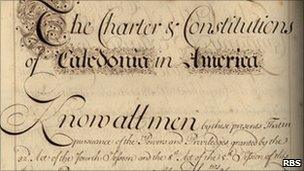 The Charter & Constitutions
of Caledonia in America
Know all men by these presents That in
pursuance of the Powers and Priviledges granted by the
Act of the fourth Session and the 8t Act of the
RBS